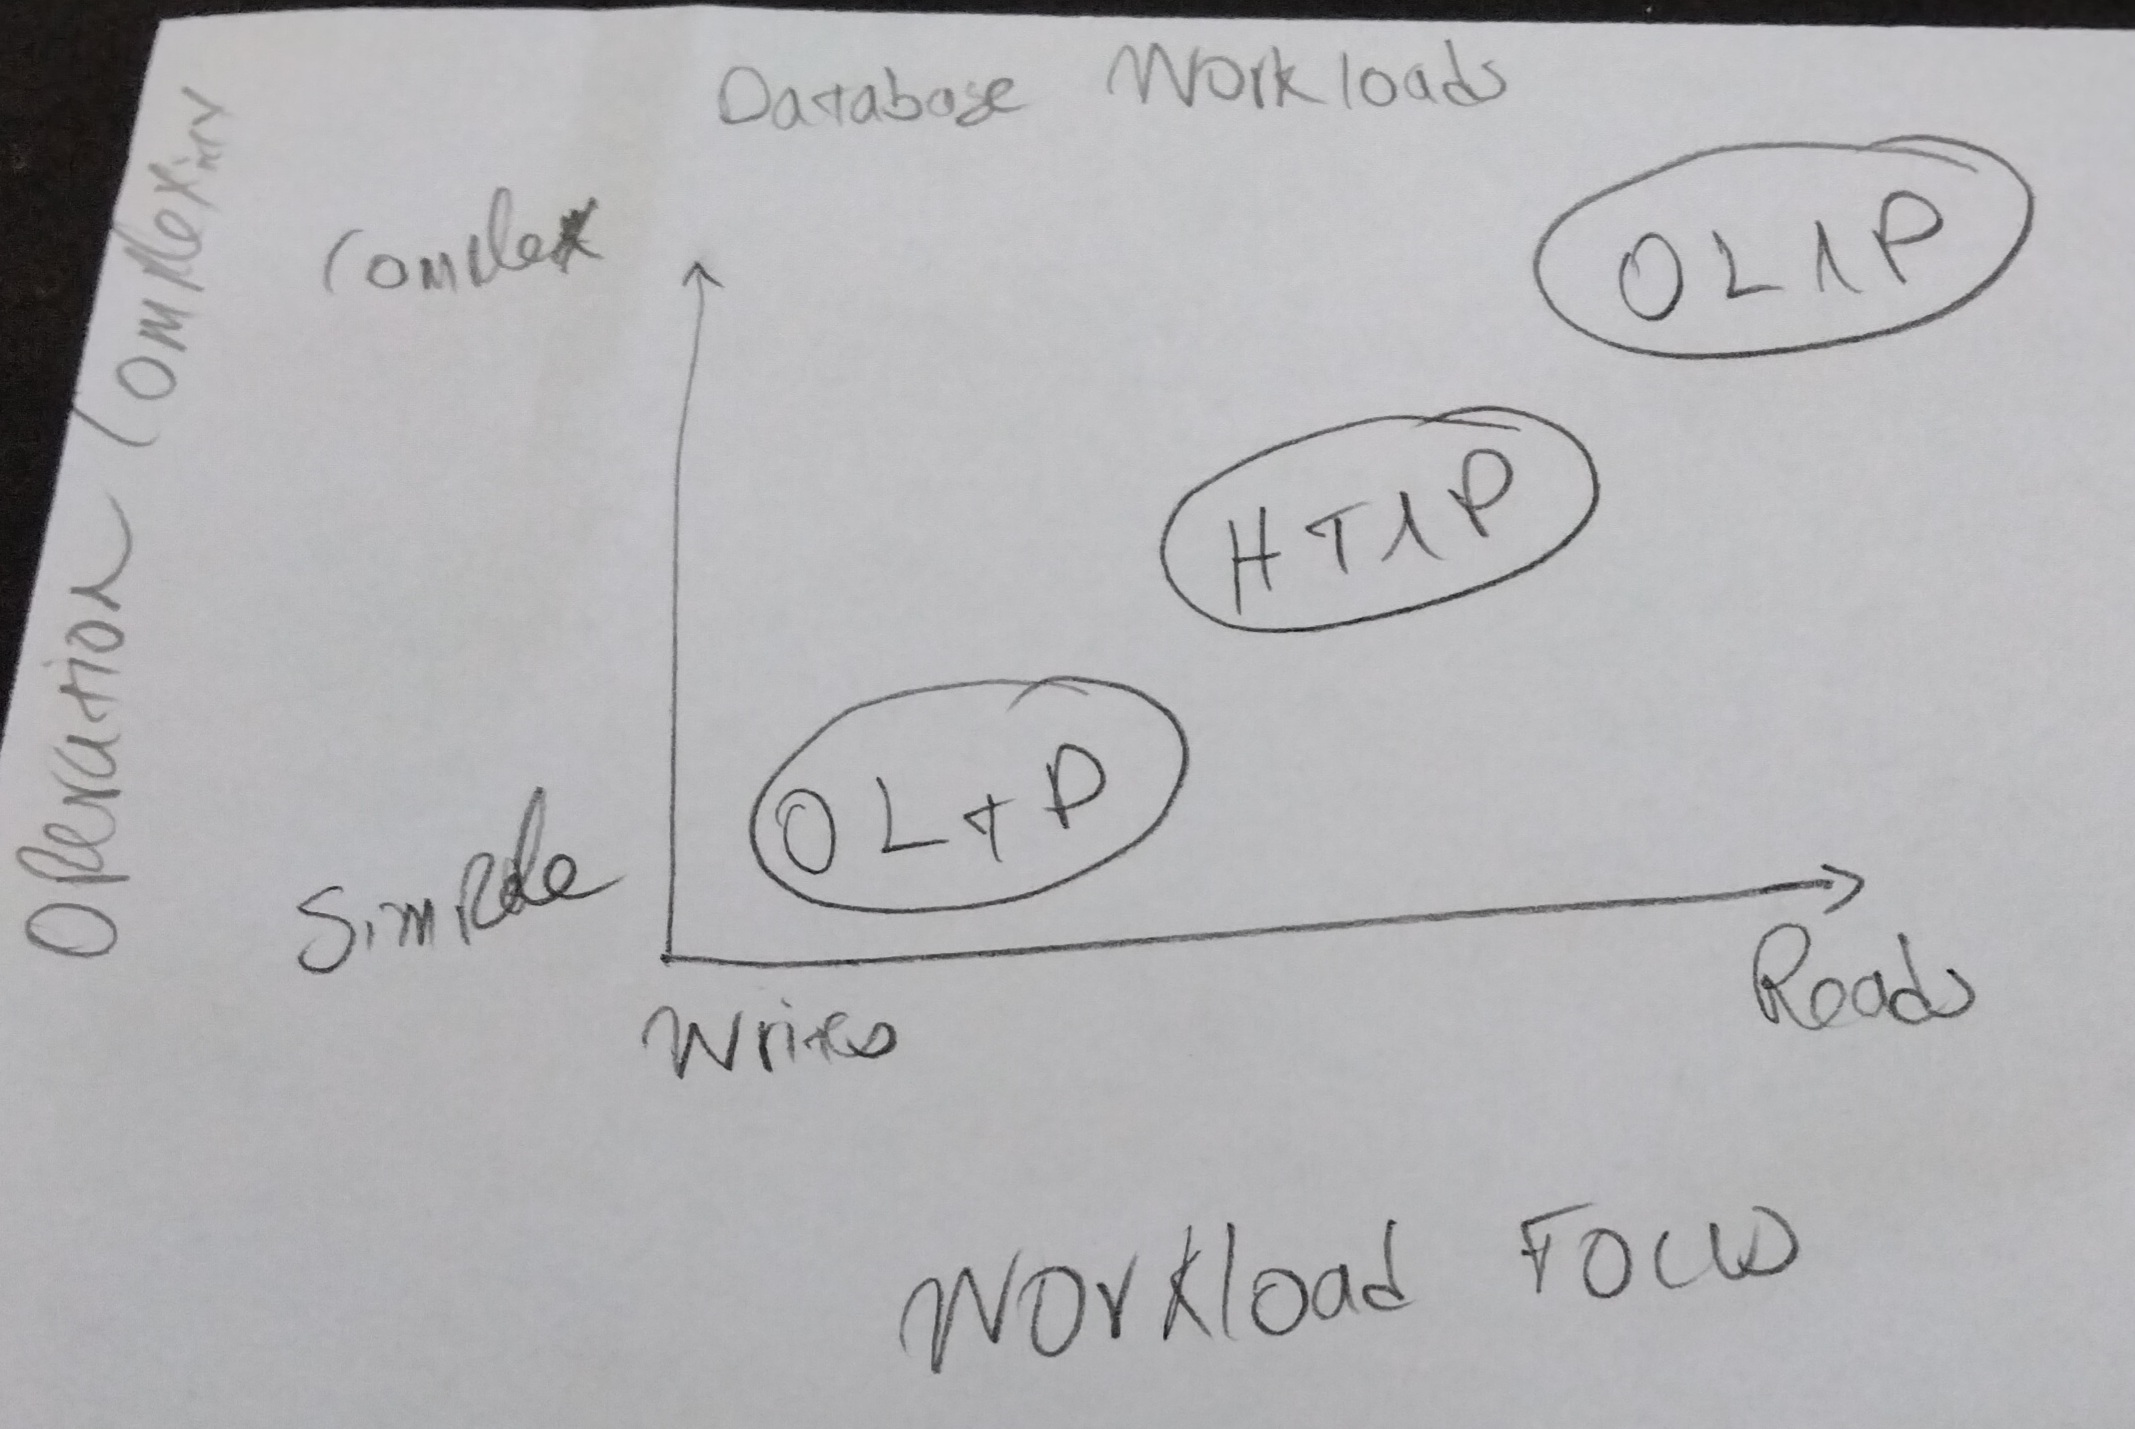 Database Workloads
Operation Complexity
Complex
OLAP
HTAP
OLTP
Simple
Writes
Reads
Workload Focus